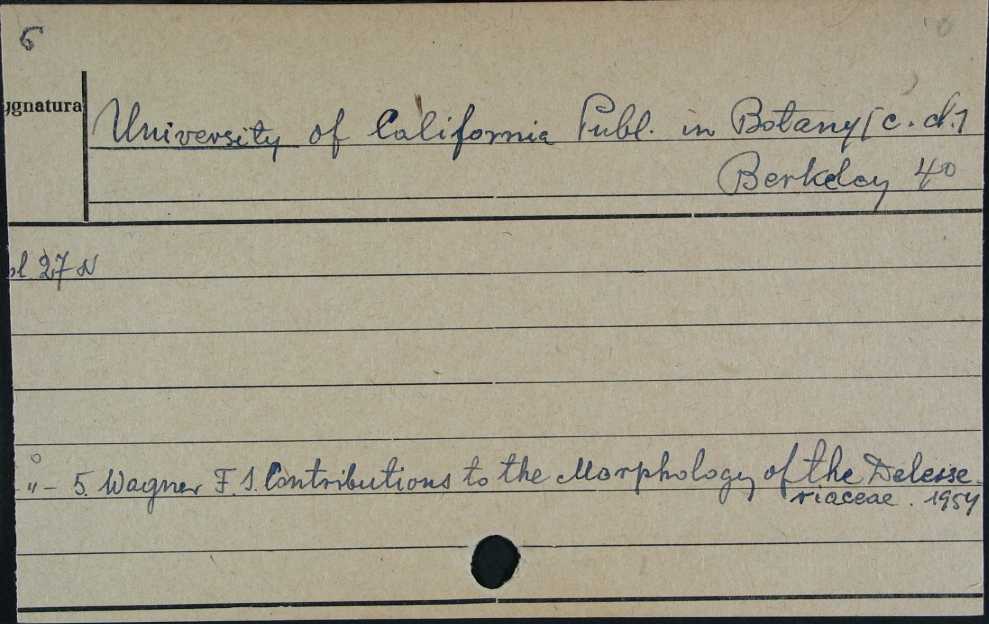 6
ygnatura
University of California Publ. in Botany [c.d.]
Berkeley 4°
ol 27 N
"- 5. Wagner F. S. Contributions to the Morphology of the Delesse
riaceae. 1954